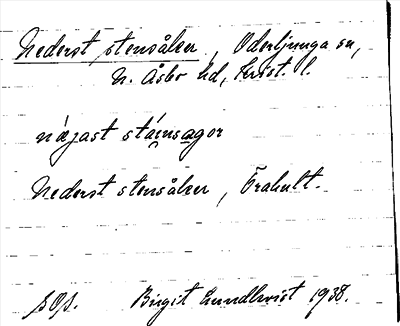 Nederst stensåker, Oderljunga sn,
N. Åsbo hd, Krist. l.
næjast stáinsagor
Nederst stensåker, Trahult.
sOp. Birgit Lundkvist 1938.